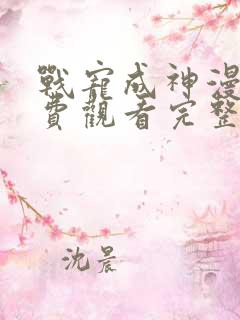 戰寵成神漫
費觀看完整
沈晨